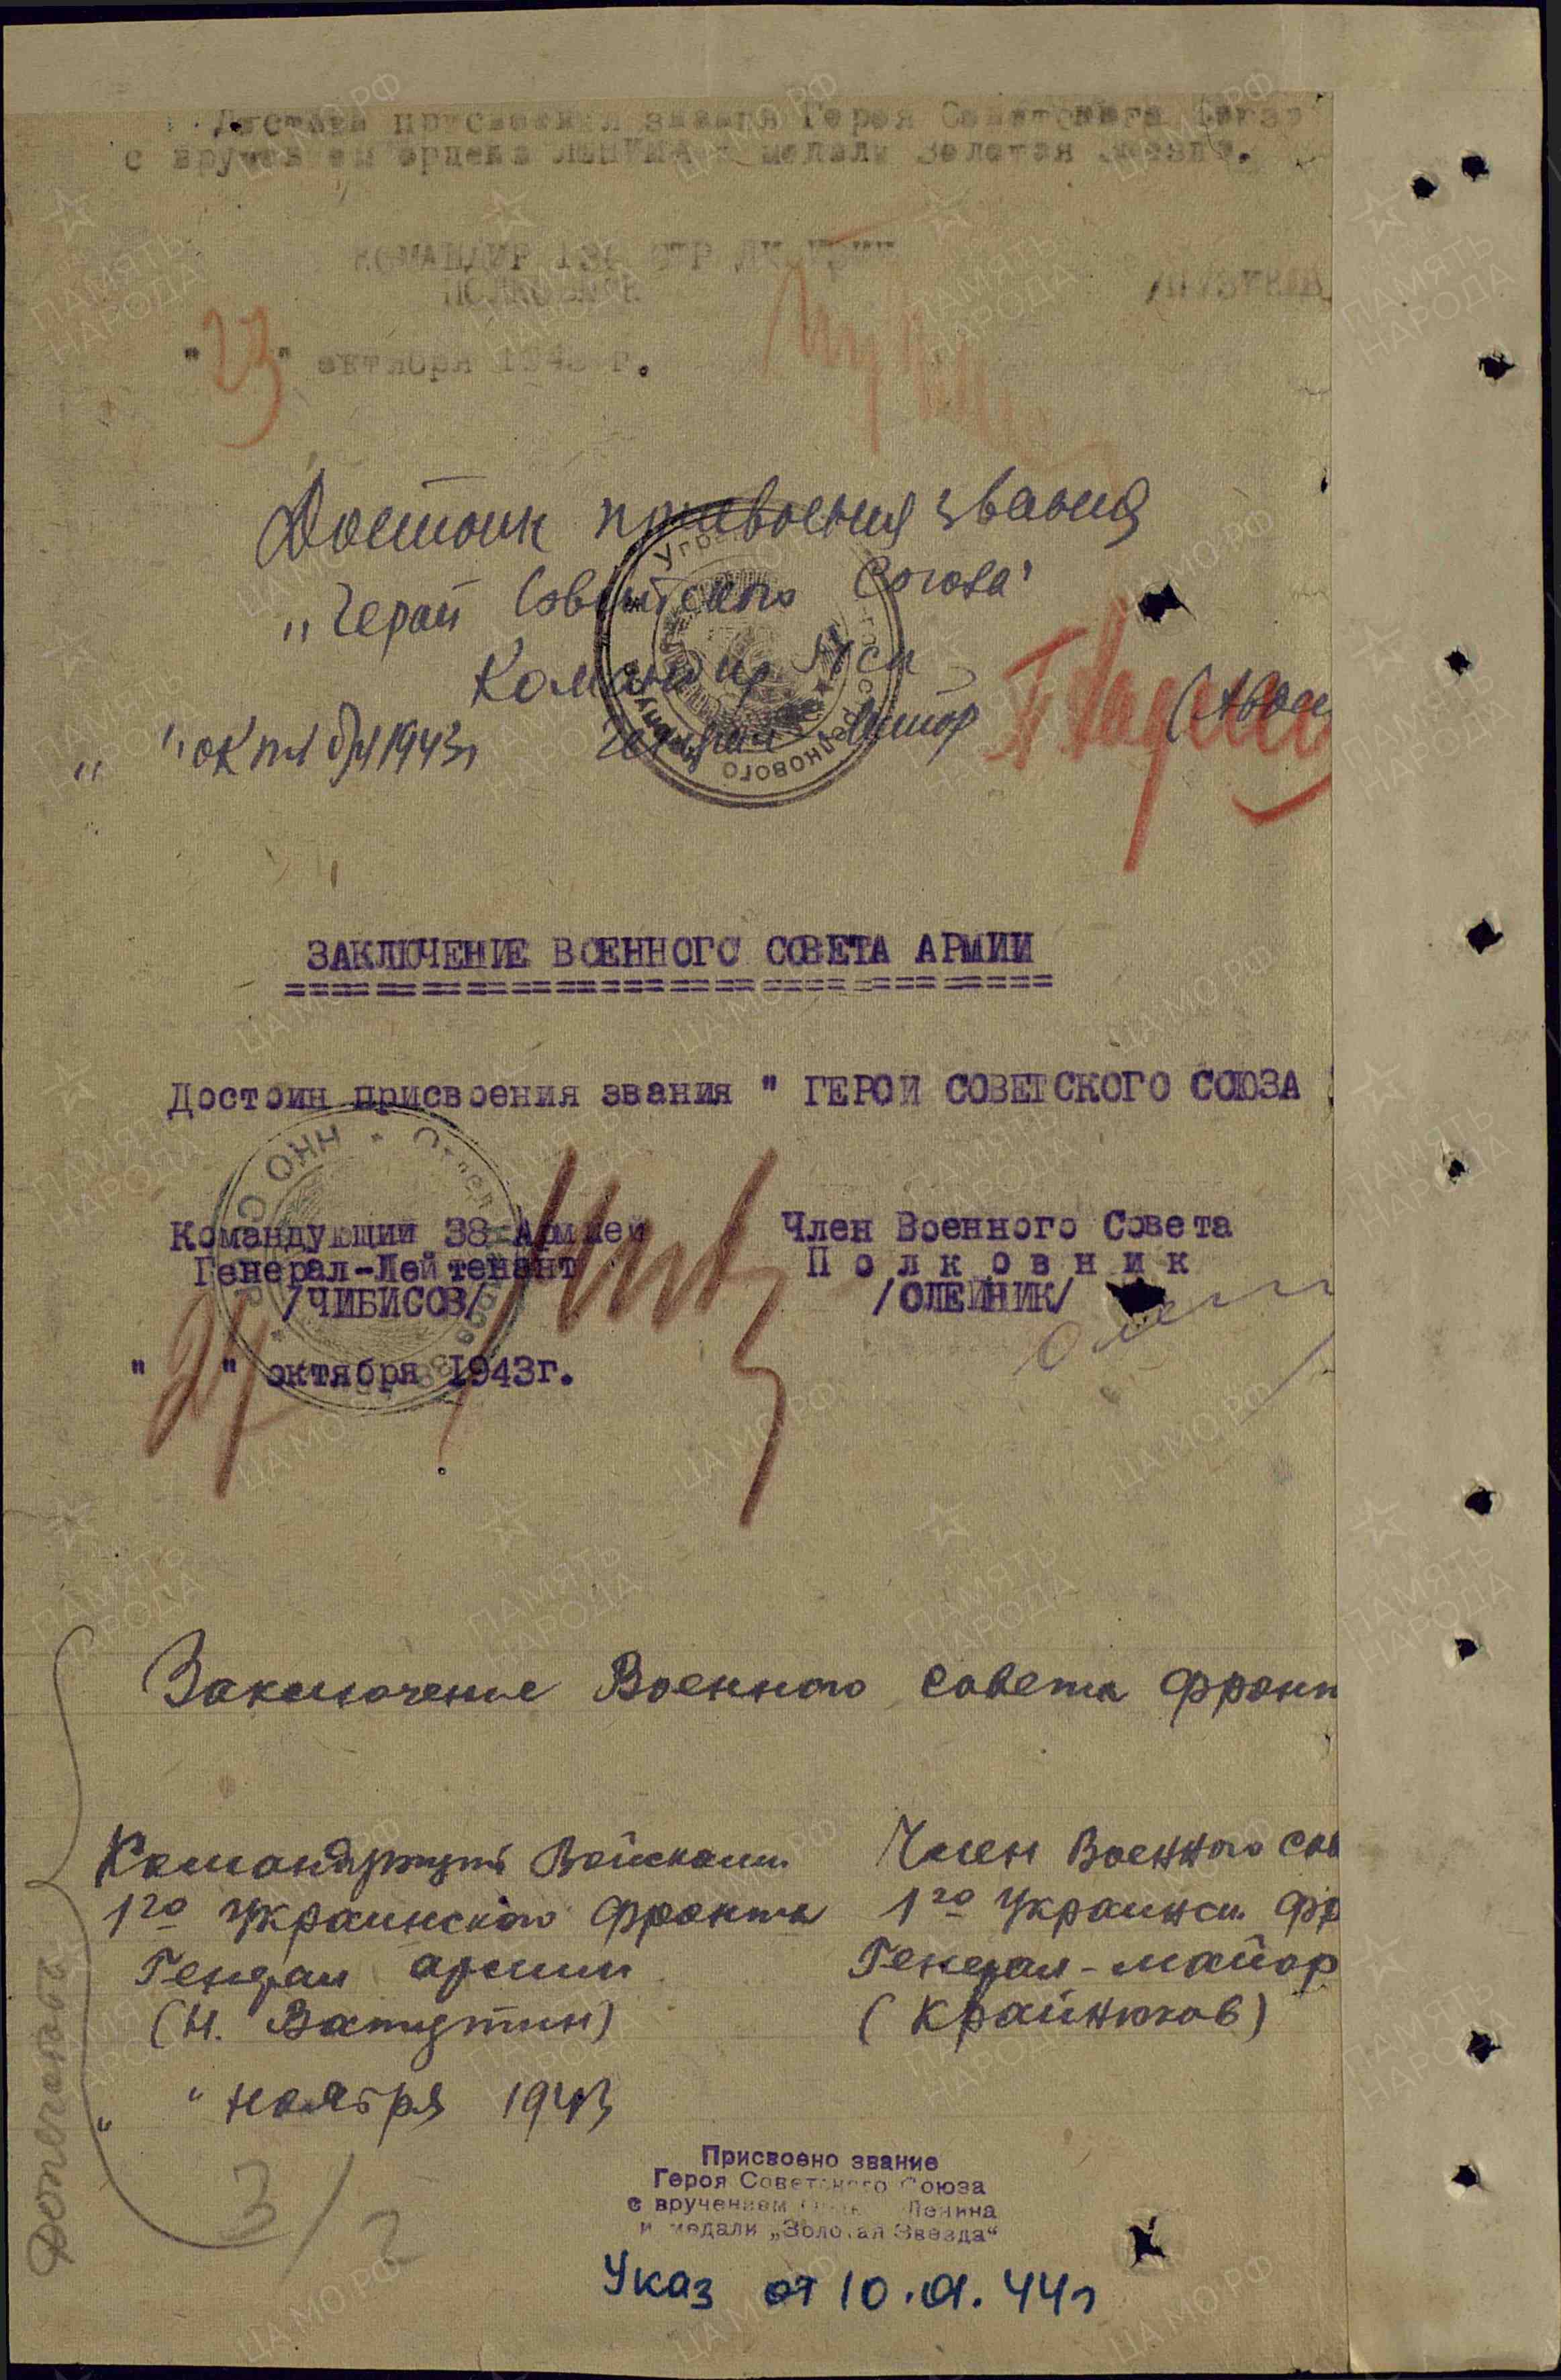 Достоин присвоения звания Героя Советского Союза
с вручением ордена ЛЕНИНА и медали Золотая Звезда.
КОМАНДИР СТР ДИВИЗИИ
ПОЛКОВНИК
"23" октября 1943 г.
Достоин присвоения звания
„Герой Советского Союза"
Командир ск
" " октября 1943г
ЗАКЛЮЧЕНИЕ ВОЕННОГО СОВЕТА АРМИИ
Достоин присвоения звания " ГЕРОЙ СОВЕТСКОГО СОЮЗА
Командующий 38 Армией
Генерал-Лейтенант
/ЧИБИСОВ/
Член Военного Совета
Полковник
/ОЛЕЙНИК/
" " октября 1943г.
Заключение Военного совета фронт
Командующий Войсками
1го Украинского фронта
Генерал армии
(Н. Ватутин)
Член Военного сов
1го Украинск. фр
Генерал-майор
(Крайнюков)
" " ноября 1943
Допечатать
3/2
Присвоено звание
Героя Советского Союза
с вручением Ордена Ленина
и медали „Золотая Звезда"
Указ от 10.01.44г
ПАМЯТЬ НАРОДА
ЦАМО.РФ